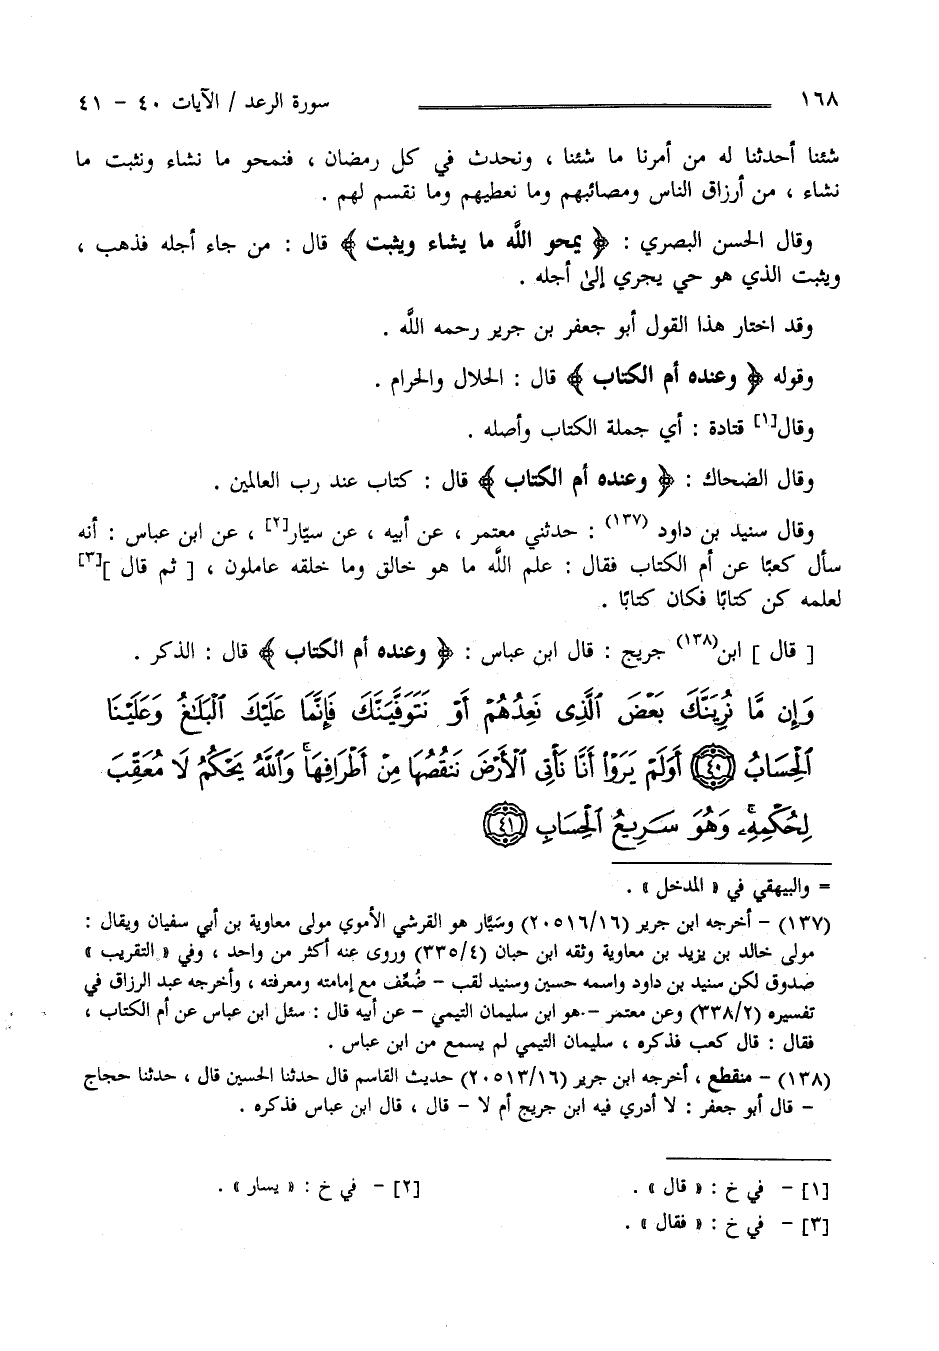 ١٦٨ سورة الرعد / الآيات ٤٠ - ٤١
شئنا أحدثنا له من أمرنا ما شئنا ، ونحدث في كل رمضان ، فنمحو ما نشاء ونثبت ما
نشاء ، من أرزاق الناس ومصائبهم وما نعطيهم وما نقسم لهم .
وقال الحسن البصري : ﴿ يمحو اللَّه ما يشاء ويثبت ﴾ قال : من جاء أجله فذهب ،
ويثبت الذي هو حي يجري إلىٰ أجله .
وقد اختار هذا القول أبو جعفر بن جرير رحمه اللَّه .
وقوله ﴿ وعنده أم الكتاب ﴾ قال : الحلال والحرام .
وقال[١] قتادة : أي جملة الكتاب وأصله .
وقال الضحاك : ﴿ وعنده أم الكتاب ﴾ قال : كتاب عند رب العالمين .
وقال سنيد بن داود (١٣٧) : حدثني معتمر ، عن أبيه ، عن سيّار[٢] ، عن ابن عباس : أنه
سأل كعبًا عن أم الكتاب فقال : علم اللَّه ما هو خالق وما خلقه عاملون ، [ ثم قال ][٣]
لعلمه كن كتابًا فكان كتابًا .
[ قال ] ابن(١٣٨) جريج : قال ابن عباس : ﴿ وعنده أم الكتاب ﴾ قال : الذكر .
وَإِن مَّا نُرِيَنَّكَ بَعْضَ ٱلَّذِى نَعِدُهُمْ أَوْ نَتَوَفَّيَنَّكَ فَإِنَّمَا عَلَيْكَ ٱلْبَلَـٰغُ وَعَلَيْنَا
ٱلْحِسَابُ ﴿٤٠﴾ أَوَلَمْ يَرَوْا۟ أَنَّا نَأْتِى ٱلْأَرْضَ نَنقُصُهَا مِنْ أَطْرَافِهَا ۚ وَٱللَّهُ يَحْكُمُ لَا مُعَقِّبَ
لِحُكْمِهِۦ ۚ وَهُوَ سَرِيعُ ٱلْحِسَابِ ﴿٤١﴾
= والبيهقي في « المدخل » .
(١٣٧) - أخرجه ابن جرير (٢٠٥١٦/١٦) وسَيَّار هو القرشي الأموي مولى معاوية بن أبي سفيان ويقال :
مولى خالد بن يزيد بن معاوية وثقه ابن حبان (٣٣٥/٤) وروى عنه أكثر من واحد ، وفي « التقريب »
صدوق لكن سنيد بن داود واسمه حسين وسنيد لقب - ضُعِّف مع إمامته ومعرفته ، وأخرجه عبد الرزاق في
تفسيره (٣٣٨/٢) وعن معتمر - هو ابن سليمان التيمي - عن أبيه قال : سئل ابن عباس عن أم الكتاب ،
فقال : قال كعب فذكره ، سليمان التيمي لم يسمع من ابن عباس .
(١٣٨) - منقطع ، أخرجه ابن جرير (٢٠٥١٣/١٦) حديث القاسم قال حدثنا الحسين قال ، حدثنا حجاج
- قال أبو جعفر : لا أدري فيه ابن جريج أم لا - قال ، قال ابن عباس فذكره .
[١] - في خ : « قال » . [٢] - في خ : « يسار » .
[٣] - في خ : « فقال » .